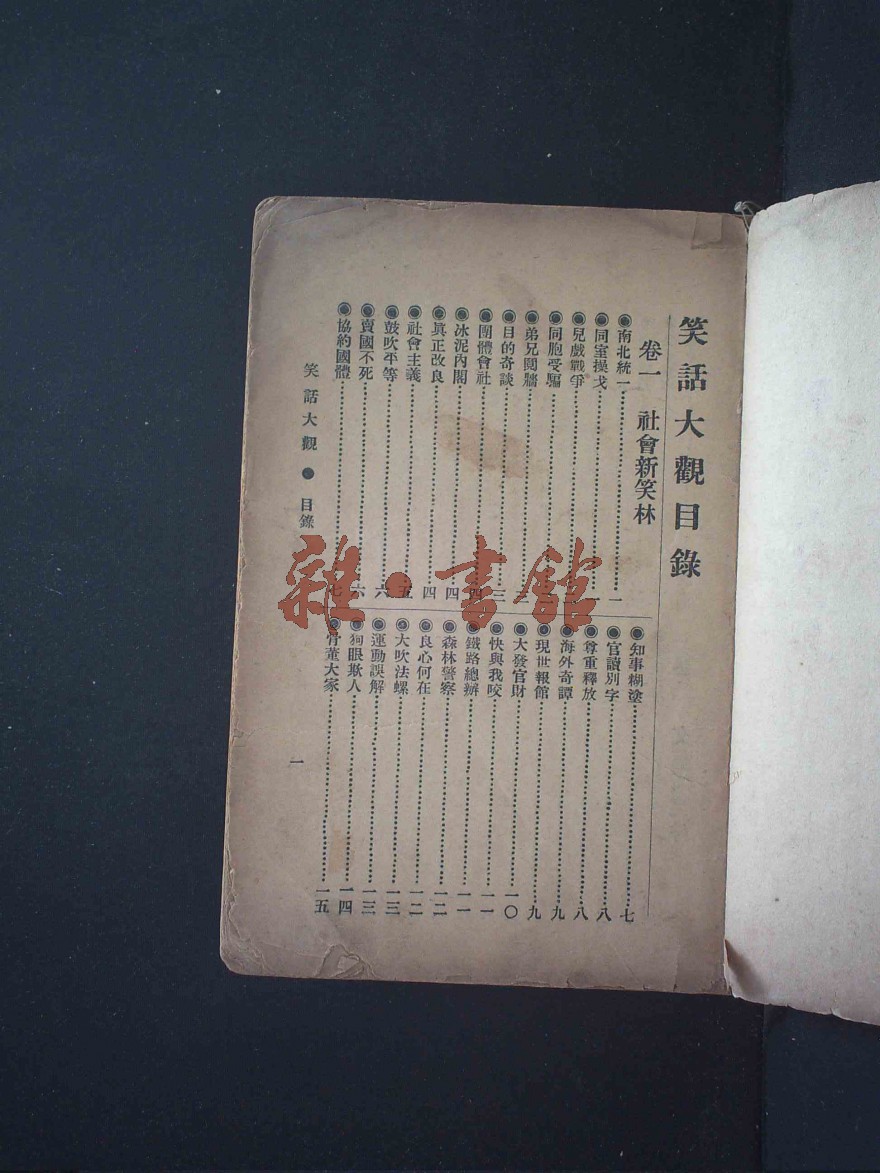 笑話大觀目錄
卷一　社會新笑林
◉南北統一……一
◉同室操戈……一
◉兒戲戰爭……
◉同胞受騙……
◉弟兄鬩牆……二
◉目的奇談……三
◉團體會社……四
◉冰泥內閣……四
◉眞正改良……四
◉社會主義……五
◉鼓吹平等……六
◉賣國不死……六
◉協約國體……七
◉知事糊塗……七
◉官讀別字……八
◉尊重釋放……八
◉海外奇譚……九
◉現世報館……九
◉大發官財……一〇
◉快與我咬……一一
◉鐵路總辦……一一
◉森林警察……一二
◉良心何在……一二
◉大吹法螺……一三
◉運動誤解……一三
◉狗眼欺人……一四
◉骨董大家……一五
笑話大觀　●　目錄
一
雜·書館